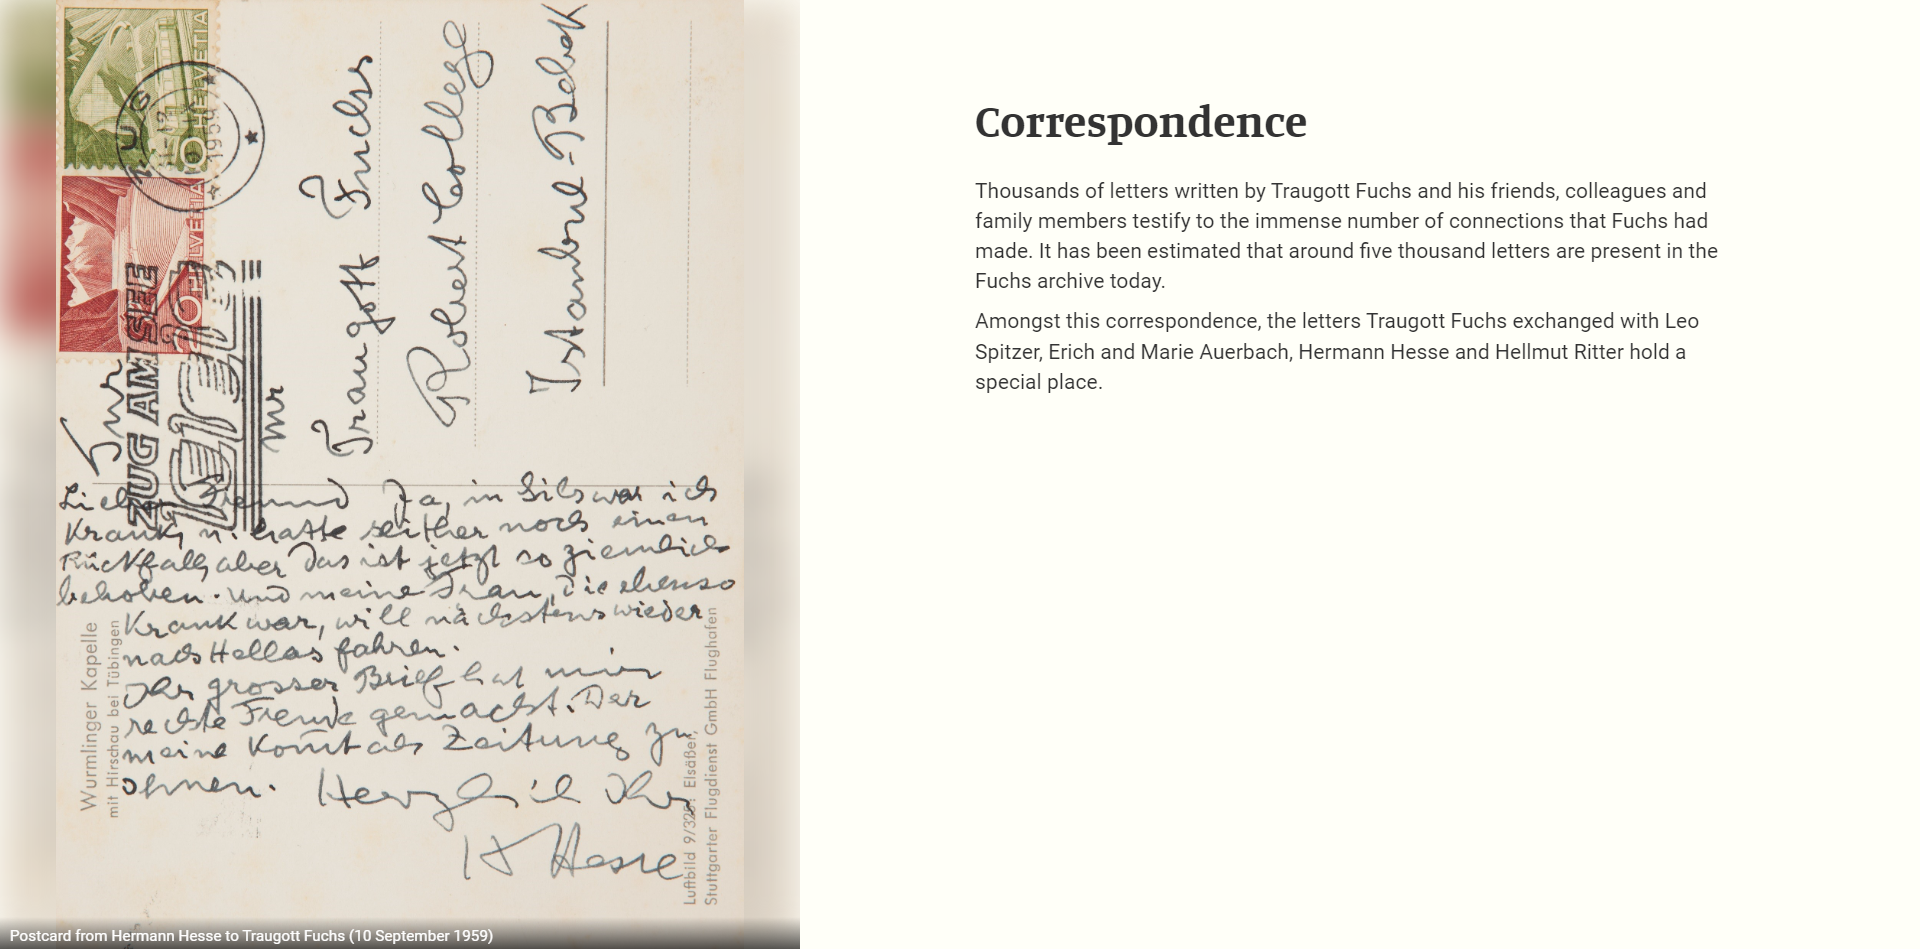 HELVETIA
HELVETIA
ZUG
11-12
1959
ZUG AM SEE
Mr
Traugott Fuchs
Robert College
Istanbul-Bebek
Lieber Freund Ja, in Sils war ich
krank, u. hatte seither noch einen
Rückfall, aber das ist jetzt so ziemlich
behoben. Und meine Frau, die ebenso
krank war, will nächstens wieder
nach Hellas fahren.
Ihr grosser Brief hat mir
rechte Freude gemacht. Der
meine kom̅t als Zeitung zu
Ihnen. Herzlich Ihr
H Hesse
Wurmlinger Kapelle
mit Hirschau bei Tübingen
Luftbild 9/325: Elsäßer,
Stuttgarter Flugdienst GmbH Flughafen
Postcard from Hermann Hesse to Traugott Fuchs (10 September 1959)
Correspondence
Thousands of letters written by Traugott Fuchs and his friends, colleagues and
family members testify to the immense number of connections that Fuchs had
made. It has been estimated that around five thousand letters are present in the
Fuchs archive today.
Amongst this correspondence, the letters Traugott Fuchs exchanged with Leo
Spitzer, Erich and Marie Auerbach, Hermann Hesse and Hellmut Ritter hold a
special place.